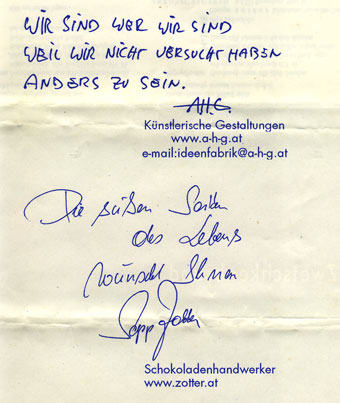 WIR SIND WER WIR SIND
WEIL WIR NICHT VERSUCHT HABEN
ANDERS ZU SEIN.
A.H.G.
Künstlerische Gestaltungen
www.a-h-g.at
e-mail:ideenfabrik@a-h-g.at
Die süßen Seiten
des Lebens
wünscht Ihnen
Sepp Zotter
Schokoladenhandwerker
www.zotter.at